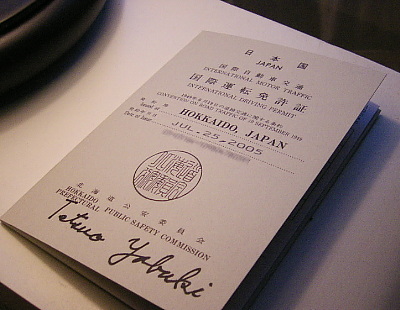 日本国
JAPAN
国際自動車交通
INTERNATIONAL MOTOR TRAFFIC
国際運転免許証
INTERNATIONAL DRIVING PERMIT
1949年9月19日の道路交通に関する条約
CONVENTION ON ROAD TRAFFIC OF 19 SEPTEMBER 1949
発給地
Issued at
HOKKAIDO, JAPAN
発給年月日
Date of Issue
JUL.25,2005
北海道公安委員会
HOKKAIDO
PREFECTURAL PUBLIC SAFETY COMMISSION
Tetsuo Yabuki